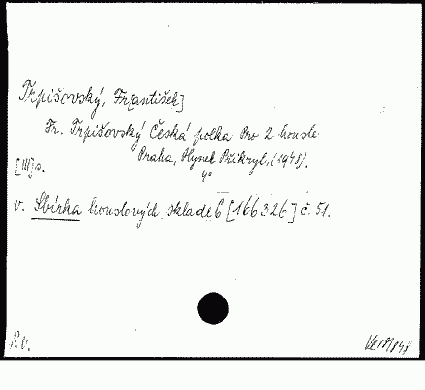 Trpišovský, František]
Fr. Trpišovský Česká polka Pro 2 housle
Praha, Hynek Přikryl, (1948).
4°
[III]s.
v. Sbírka houslových skladeb [166326] č. 51.
P.V.